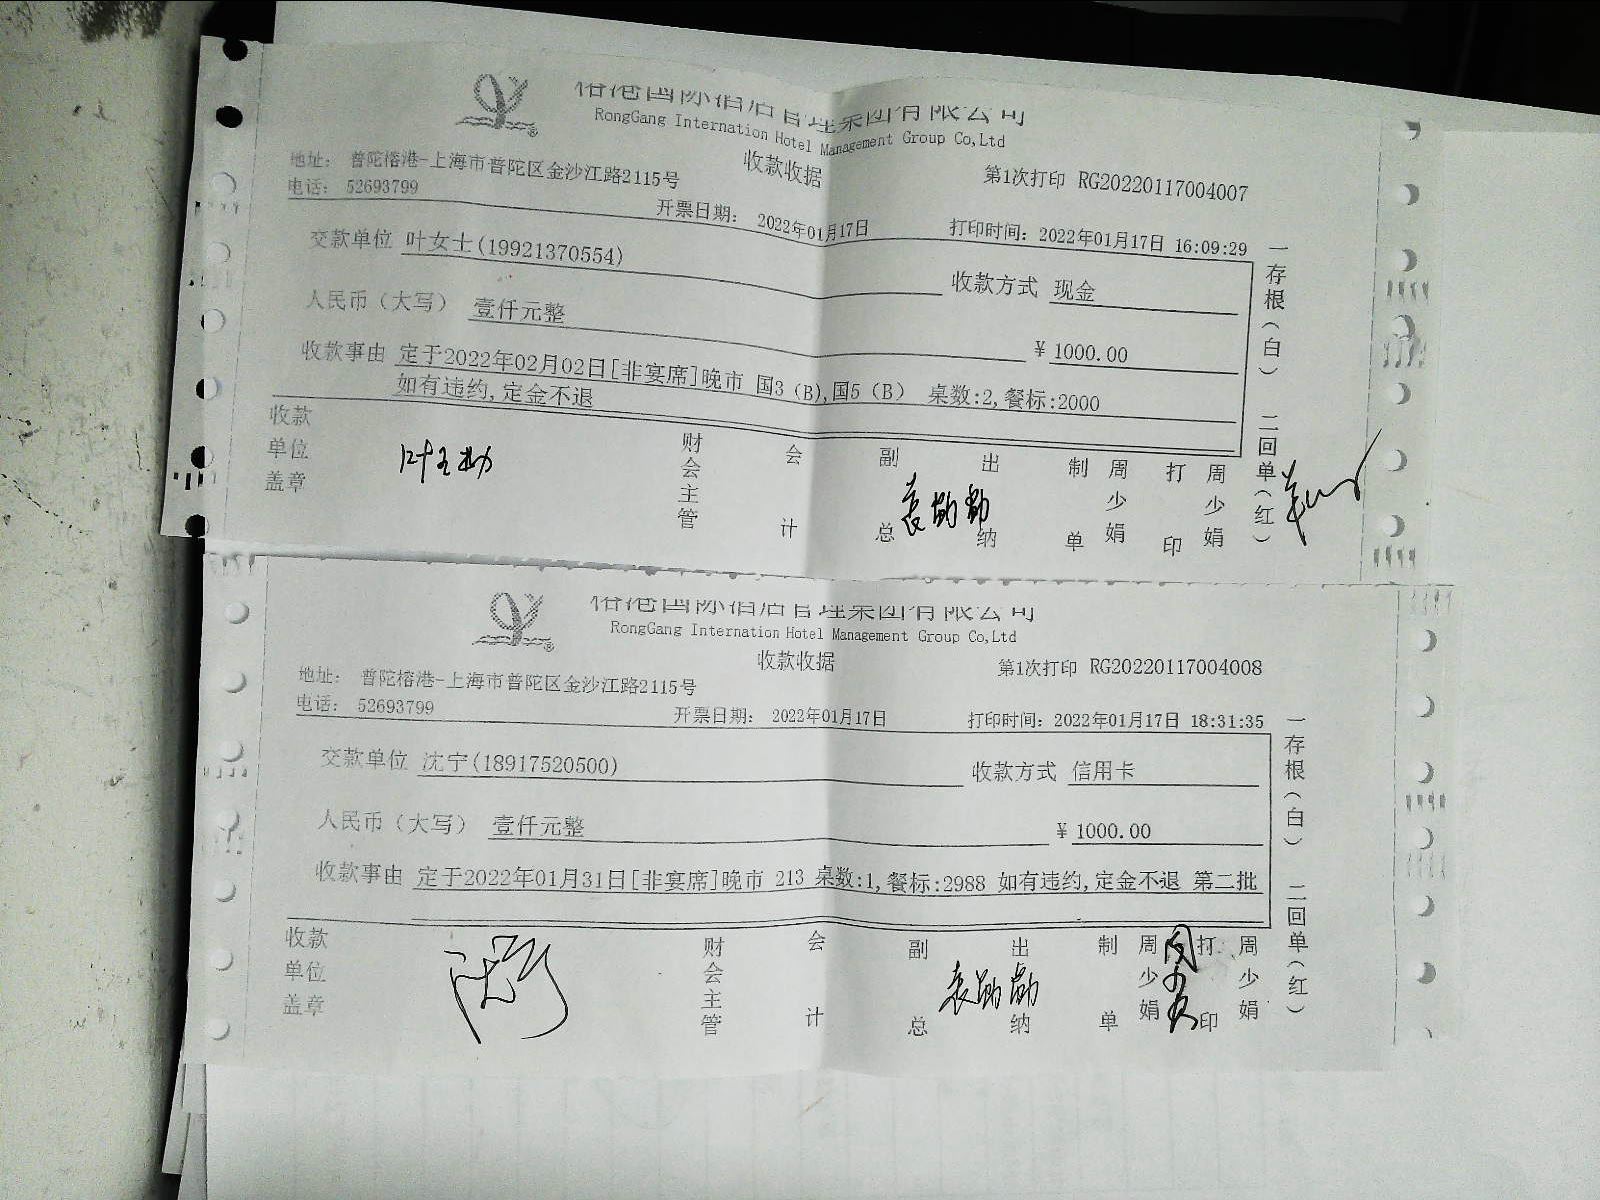 榕港国际酒店管理集团有限公司
RongGang Internation Hotel Management Group Co,Ltd
收款收据
地址： 普陀榕港-上海市普陀区金沙江路2115号
第1次打印 RG20220117004007
电话： 52693799
开票日期： 2022年01月17日
打印时间：2022年01月17日 16:09:29
交款单位 叶女士(19921370554)
收款方式 现金
人民币（大写） 壹仟元整
¥ 1000.00
收款事由 定于2022年02月02日[非宴席]晚市 国3（B),国5（B） 桌数:2,餐标:2000
如有违约,定金不退
收款单位盖章
财会主管
会计
副总
出纳
袁勋勋
制单
周少娟
打印
周少娟
一存根（白） 二回单（红）
榕港国际酒店管理集团有限公司
RongGang Internation Hotel Management Group Co,Ltd
收款收据
第1次打印 RG20220117004008
地址： 普陀榕港-上海市普陀区金沙江路2115号
电话： 52693799
开票日期： 2022年01月17日
打印时间：2022年01月17日 18:31:35
交款单位 沈宁(18917520500)
收款方式 信用卡
人民币（大写） 壹仟元整
¥ 1000.00
收款事由 定于2022年01月31日[非宴席]晚市 213 桌数:1,餐标:2988 如有违约,定金不退 第二批
收款单位盖章
沈宁
财会主管
会计
副总
出纳
袁勋勋
制单
周少娟
打印
周少娟
一存根（白） 二回单（红）